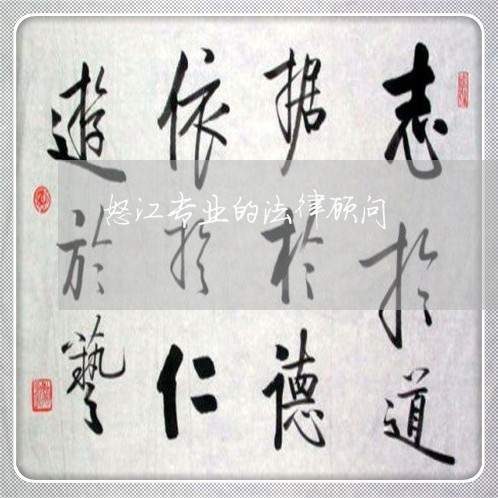 志於道
据於德
依於仁
遊於藝
怒江专业的法律顾问